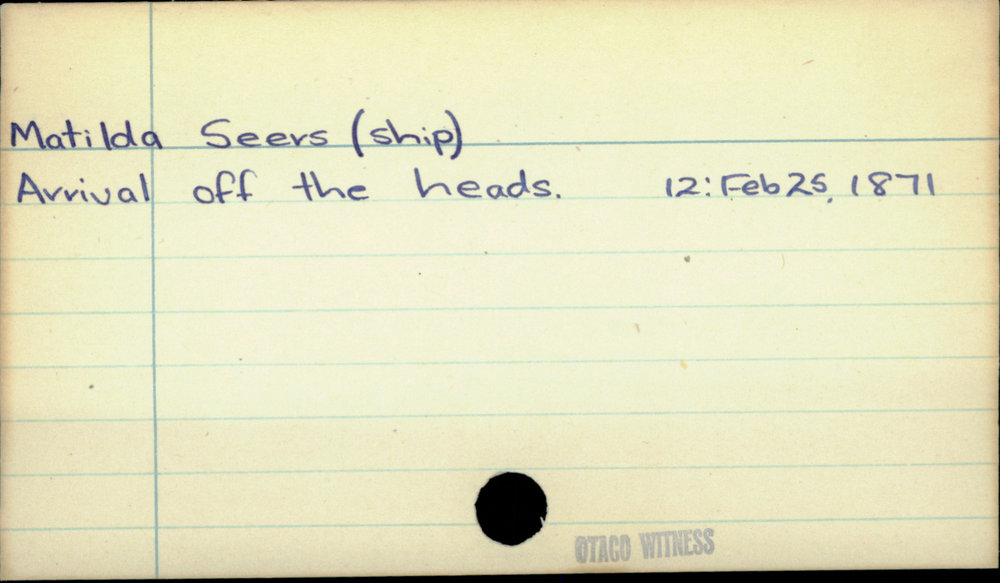 Matilda Seers (ship)
Arrival off the heads. 12: Feb 25, 1871
OTAGO WITNESS